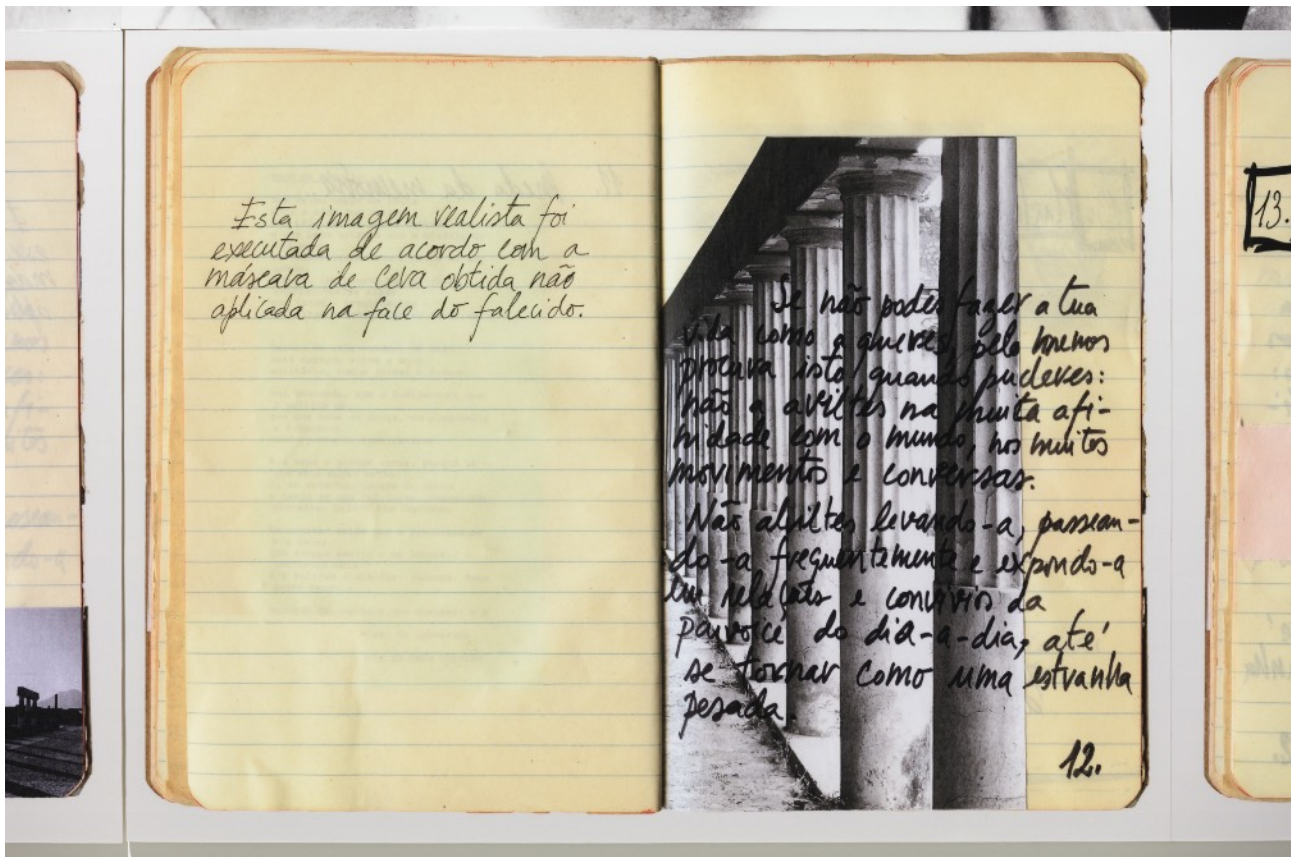 Esta imagem realista foi
executada de acordo com a
máscara de cera obtida não
aplicada na face do falecido.
Se não podes fazer a tua
vida como a queres, pelo menos
procura isto quando puderes:
não a aviltes na muita afi-
nidade com o mundo, nos muitos
movimentos e conversas.
Não aviltes levando-a, passean-
do-a frequentemente e expondo-a
em relações e convívios da
parvoíce do dia-a-dia, até
se tornar como uma estranha
pesada.
12.
13.